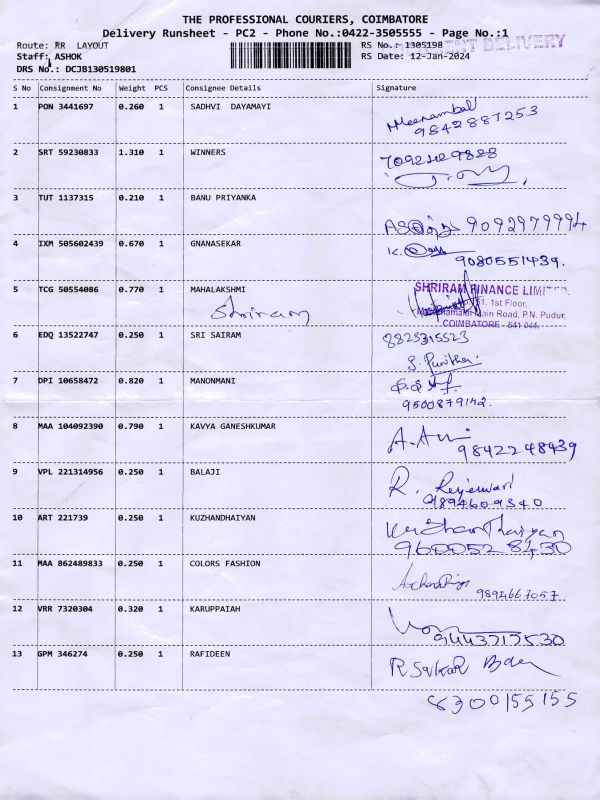 THE PROFESSIONAL COURIERS, COIMBATORE
Delivery Runsheet - PC2 - Phone No.:0422-3505555 - Page No.:1
Route: RR LAYOUT RS No.: 1305198 DELIVERY
Staff: ASHOK RS Date: 12-Jan-2024
DRS No.: DCJB130519801
S No Consignment No Weight PCS Consignee Details Signature
1 PON 3441697 0.260 1 SADHVI DAYAMAYI Meenambal
9842887253
2 SRT 59230833 1.310 1 WINNERS
3 TUT 1137315 0.210 1 BANU PRIYANKA
9092979994
4 IXM 505602439 0.670 1 GNANASEKAR
9080551439.
5 TCG 50554086 0.770 1 MAHALAKSHMI SHRIRAM FINANCE LIMITED
Shriram 1st Floor,
Main Road, P.N. Pudur,
COIMBATORE - 641 041.
6 EDQ 13522747 0.250 1 SRI SAIRAM 8825315523
S. Punitha
7 DPI 10658472 0.820 1 MANONMANI
9500879142.
8 MAA 104092390 0.790 1 KAVYA GANESHKUMAR
9842248439
9 VPL 221314956 0.250 1 BALAJI R. Rajeswari
9894609340
10 ART 221739 0.250 1 KUZHANDHAIYAN Kuzhanthaiyan
9600528430
11 MAA 862489833 0.250 1 COLORS FASHION
9894667057
12 VRR 7320304 0.320 1 KARUPPAIAH
9443717530
13 GPM 346274 0.250 1 RAFIDEEN
8300155155